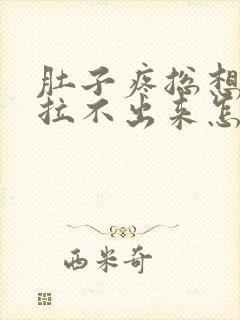 肚子疼总想
拉不出来怎
西米奇